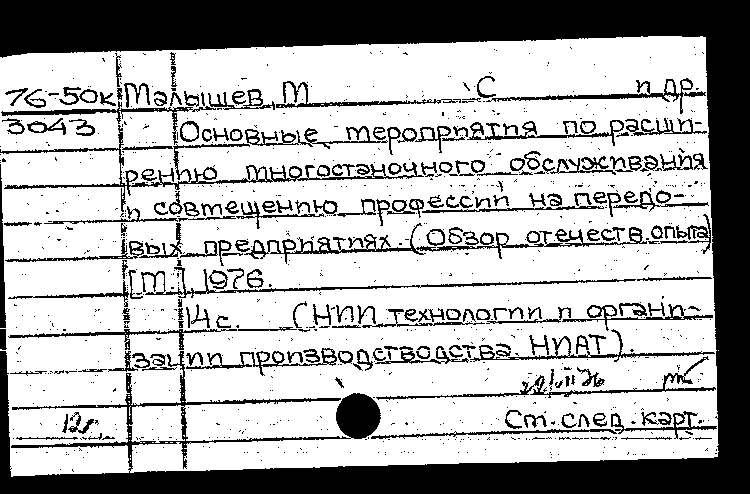 76-50к Малышев, М С и др.
3043 Основные мероприятия по расши-
рению многостаночного обслуживания
и совмещению профессий на передо-
вых предприятиях. (Обзор отечеств. опыта)
[М.], 1976.
14 с. (НИИ технологии и органи-
зации производстводства НИАТ).
12г.
Ст. след. карт.